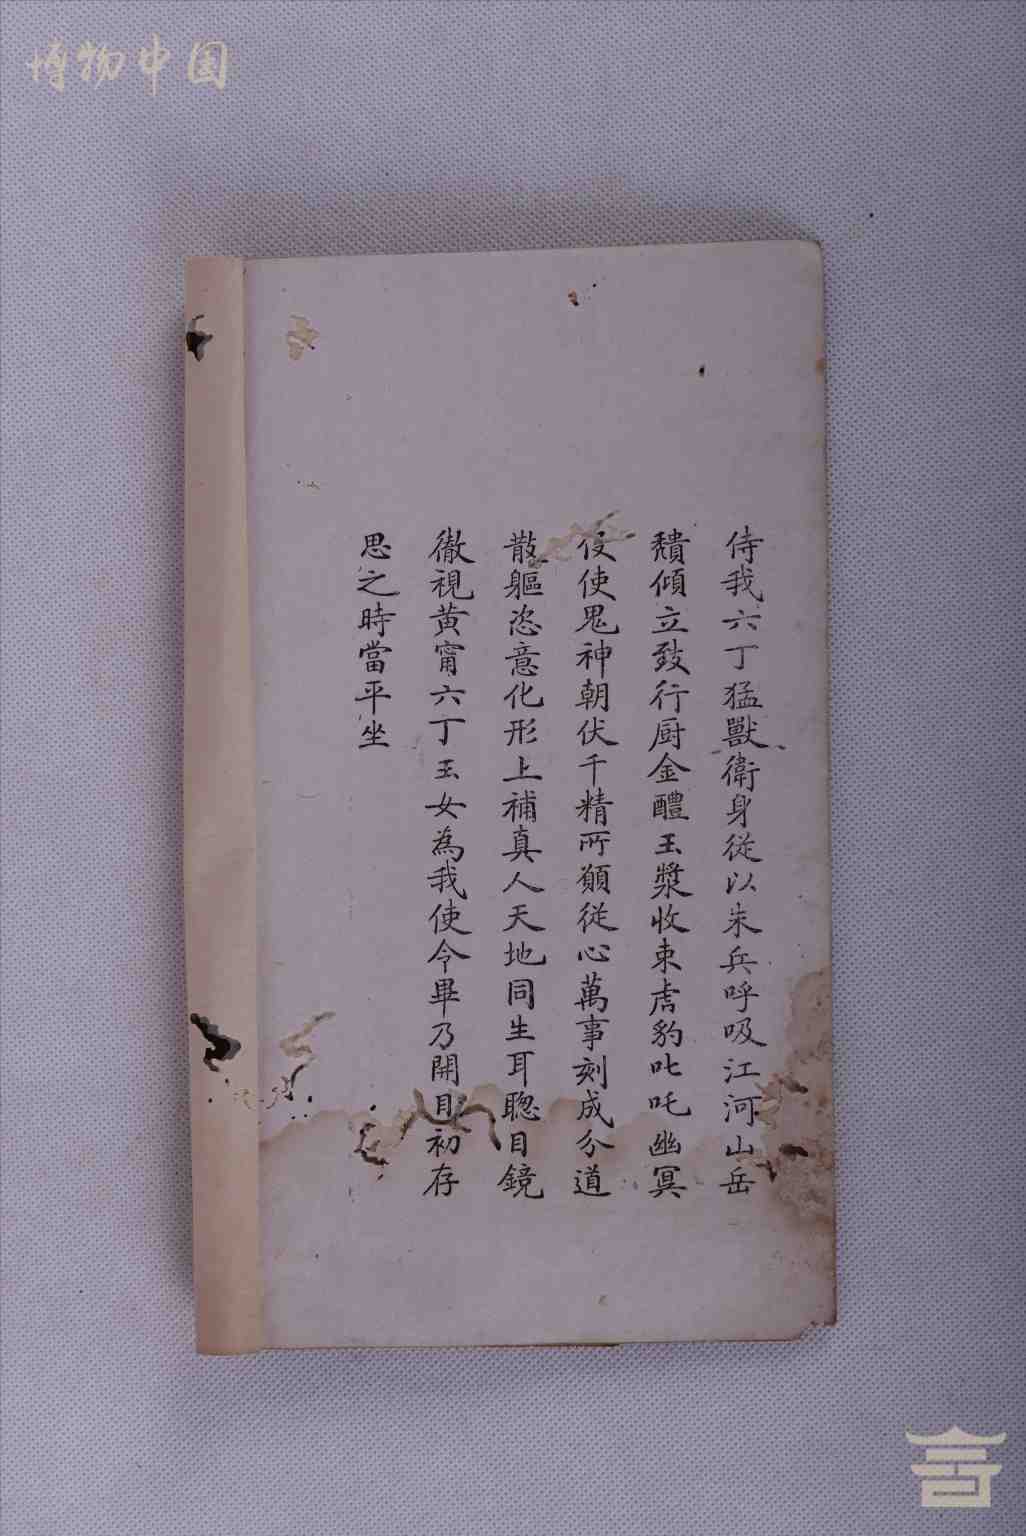 博物中国
侍我六丁猛獸衛身從以朱兵呼吸江河山岳
頹傾立致行厨金醴玉漿收束虎豹叱吒幽冥
役使鬼神朝伏千精所願從心萬事刻成分道
散軀恣意化形上補真人天地同生耳聰目鏡
徹視黄甯六丁玉女為我使令畢乃開目初存
思之時當平坐